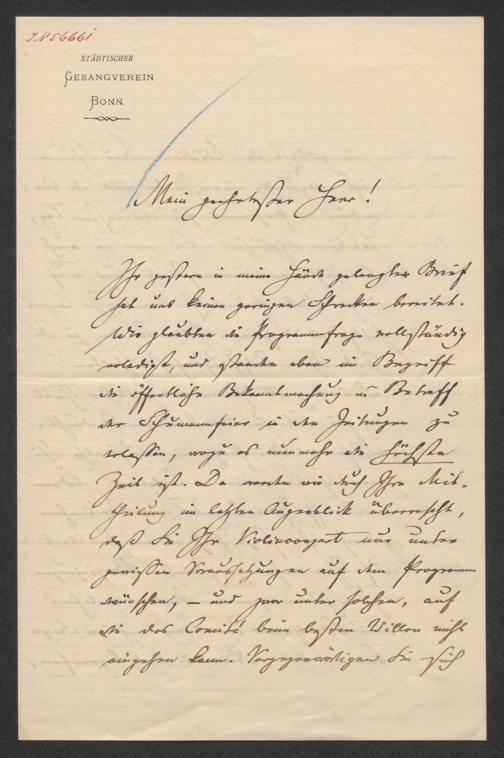 JN 56661
STÄDTISCHER
GESANGVEREIN
BONN
Mein geehrtester Herr!
Ihr gestern in meine Hände gelangter Brief
hat uns keinen geringen Schrecken bereitet.
Wir glaubten die Programmfrage vollständig
erledigt, und standen eben im Begriff
die öffentliche Bekanntmachung in Betreff
der Schumannfeier in den Zeitungen zu
erlassen, wozu es nunmehr die höchste
Zeit ist. Da werden wir durch Ihre Mit-
theilung im letzten Augenblick überrascht,
daß Sie Ihr Violinconzert nur unter
gewissen Voraussetzungen auf dem Programm
wünschen, – und zwar unter solchen, auf
die das Comité beim besten Willen nicht
eingehen kann. Vergegenwärtigen Sie sich